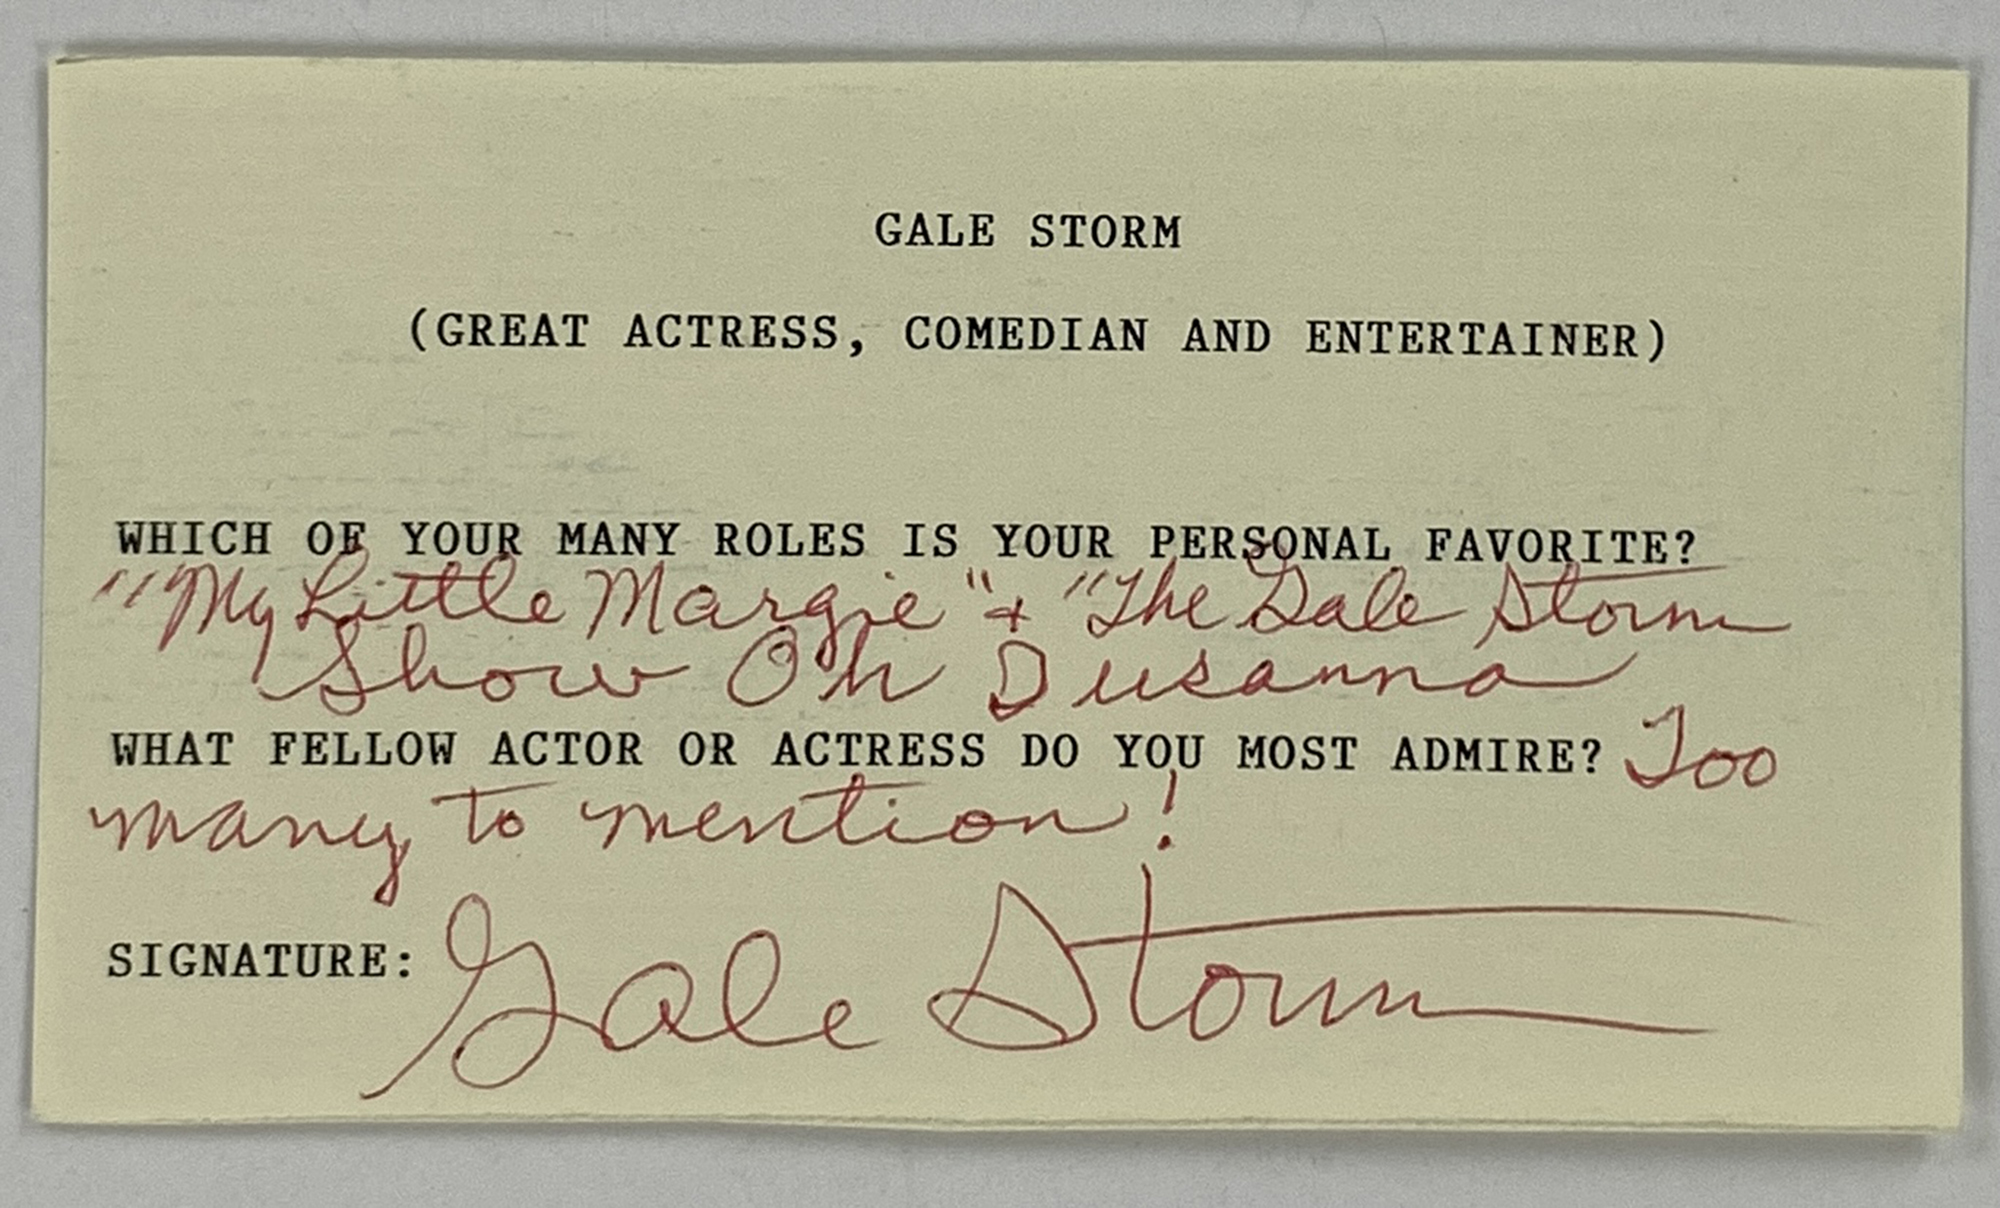 GALE STORM
(GREAT ACTRESS, COMEDIAN AND ENTERTAINER)
WHICH OF YOUR MANY ROLES IS YOUR PERSONAL FAVORITE?
"My Little Margie" + "The Gale Storm
Show Oh Susanna
WHAT FELLOW ACTOR OR ACTRESS DO YOU MOST ADMIRE? Too
many to mention!
SIGNATURE: Gale Storm